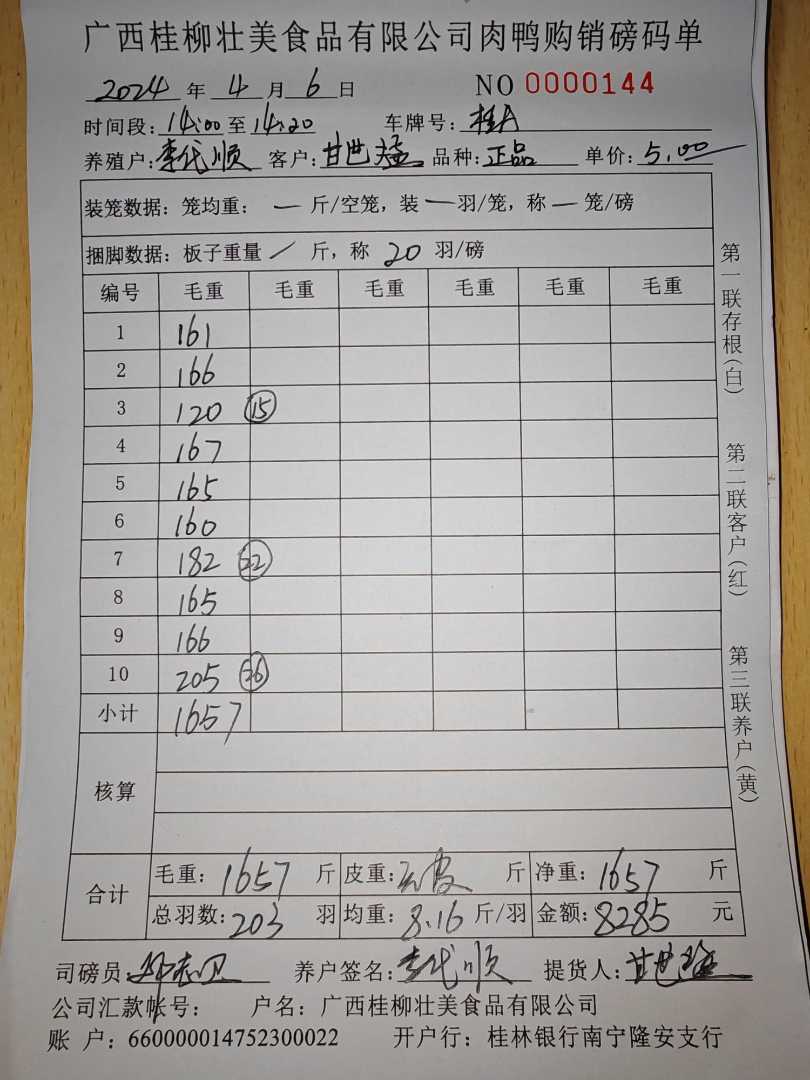 广西桂柳壮美食品有限公司肉鸭购销磅码单
2024 年 4 月 6 日 NO 0000144
时间段: 14:00 至 14:20 车牌号: 桂A
养殖户: 李代顺 客户: 甘世 品种: 正品 单价: 5.00
装笼数据: 笼均重: — 斤/空笼, 装 — 羽/笼, 称 — 笼/磅
捆脚数据: 板子重量 / 斤, 称 20 羽/磅
编号 毛重 毛重 毛重 毛重 毛重 毛重
1 161
2 166
3 120 15
4 167
5 165
6 160
7 182 22
8 165
9 166
10 205 26
小计 1657
核算
合计 毛重: 1657 斤 皮重: 皮 斤 净重: 1657 斤
总羽数: 203 羽 均重: 8.16 斤/羽 金额: 8285 元
司磅员: 养户签名: 李代顺 提货人: 甘世
公司汇款帐号: 户名: 广西桂柳壮美食品有限公司
账 户: 660000014752300022 开户行: 桂林银行南宁隆安支行
第一联存根(白)
第二联客户(红)
第三联养户(黄)